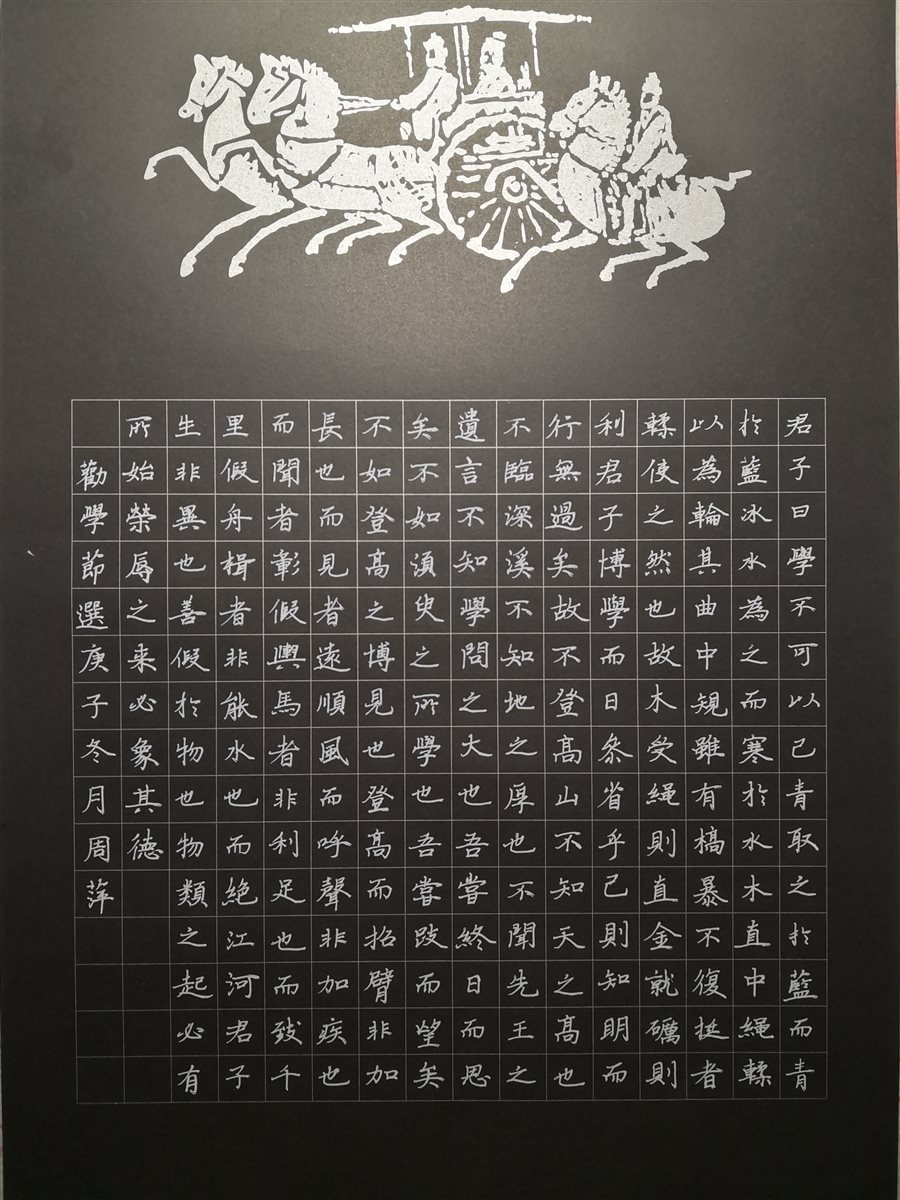 君子曰學不可以已青取之於藍而青
於藍冰水為之而寒於水木直中繩輮
以為輪其曲中規雖有槁暴不復挺者
輮使之然也故木受繩則直金就礪則
利君子博學而日參省乎己則知明而
行無過矣故不登高山不知天之高也
不臨深溪不知地之厚也不聞先王之
遺言不知學問之大也吾嘗終日而思
矣不如須臾之所學也吾嘗跂而望矣
不如登高之博見也登高而招臂非加
長也而見者遠順風而呼聲非加疾也
而聞者彰假輿馬者非利足也而致千
里假舟楫者非能水也而絕江河君子
生非異也善假於物也物類之起必有
所始榮辱之來必象其德
勸學節選庚子冬月周萍